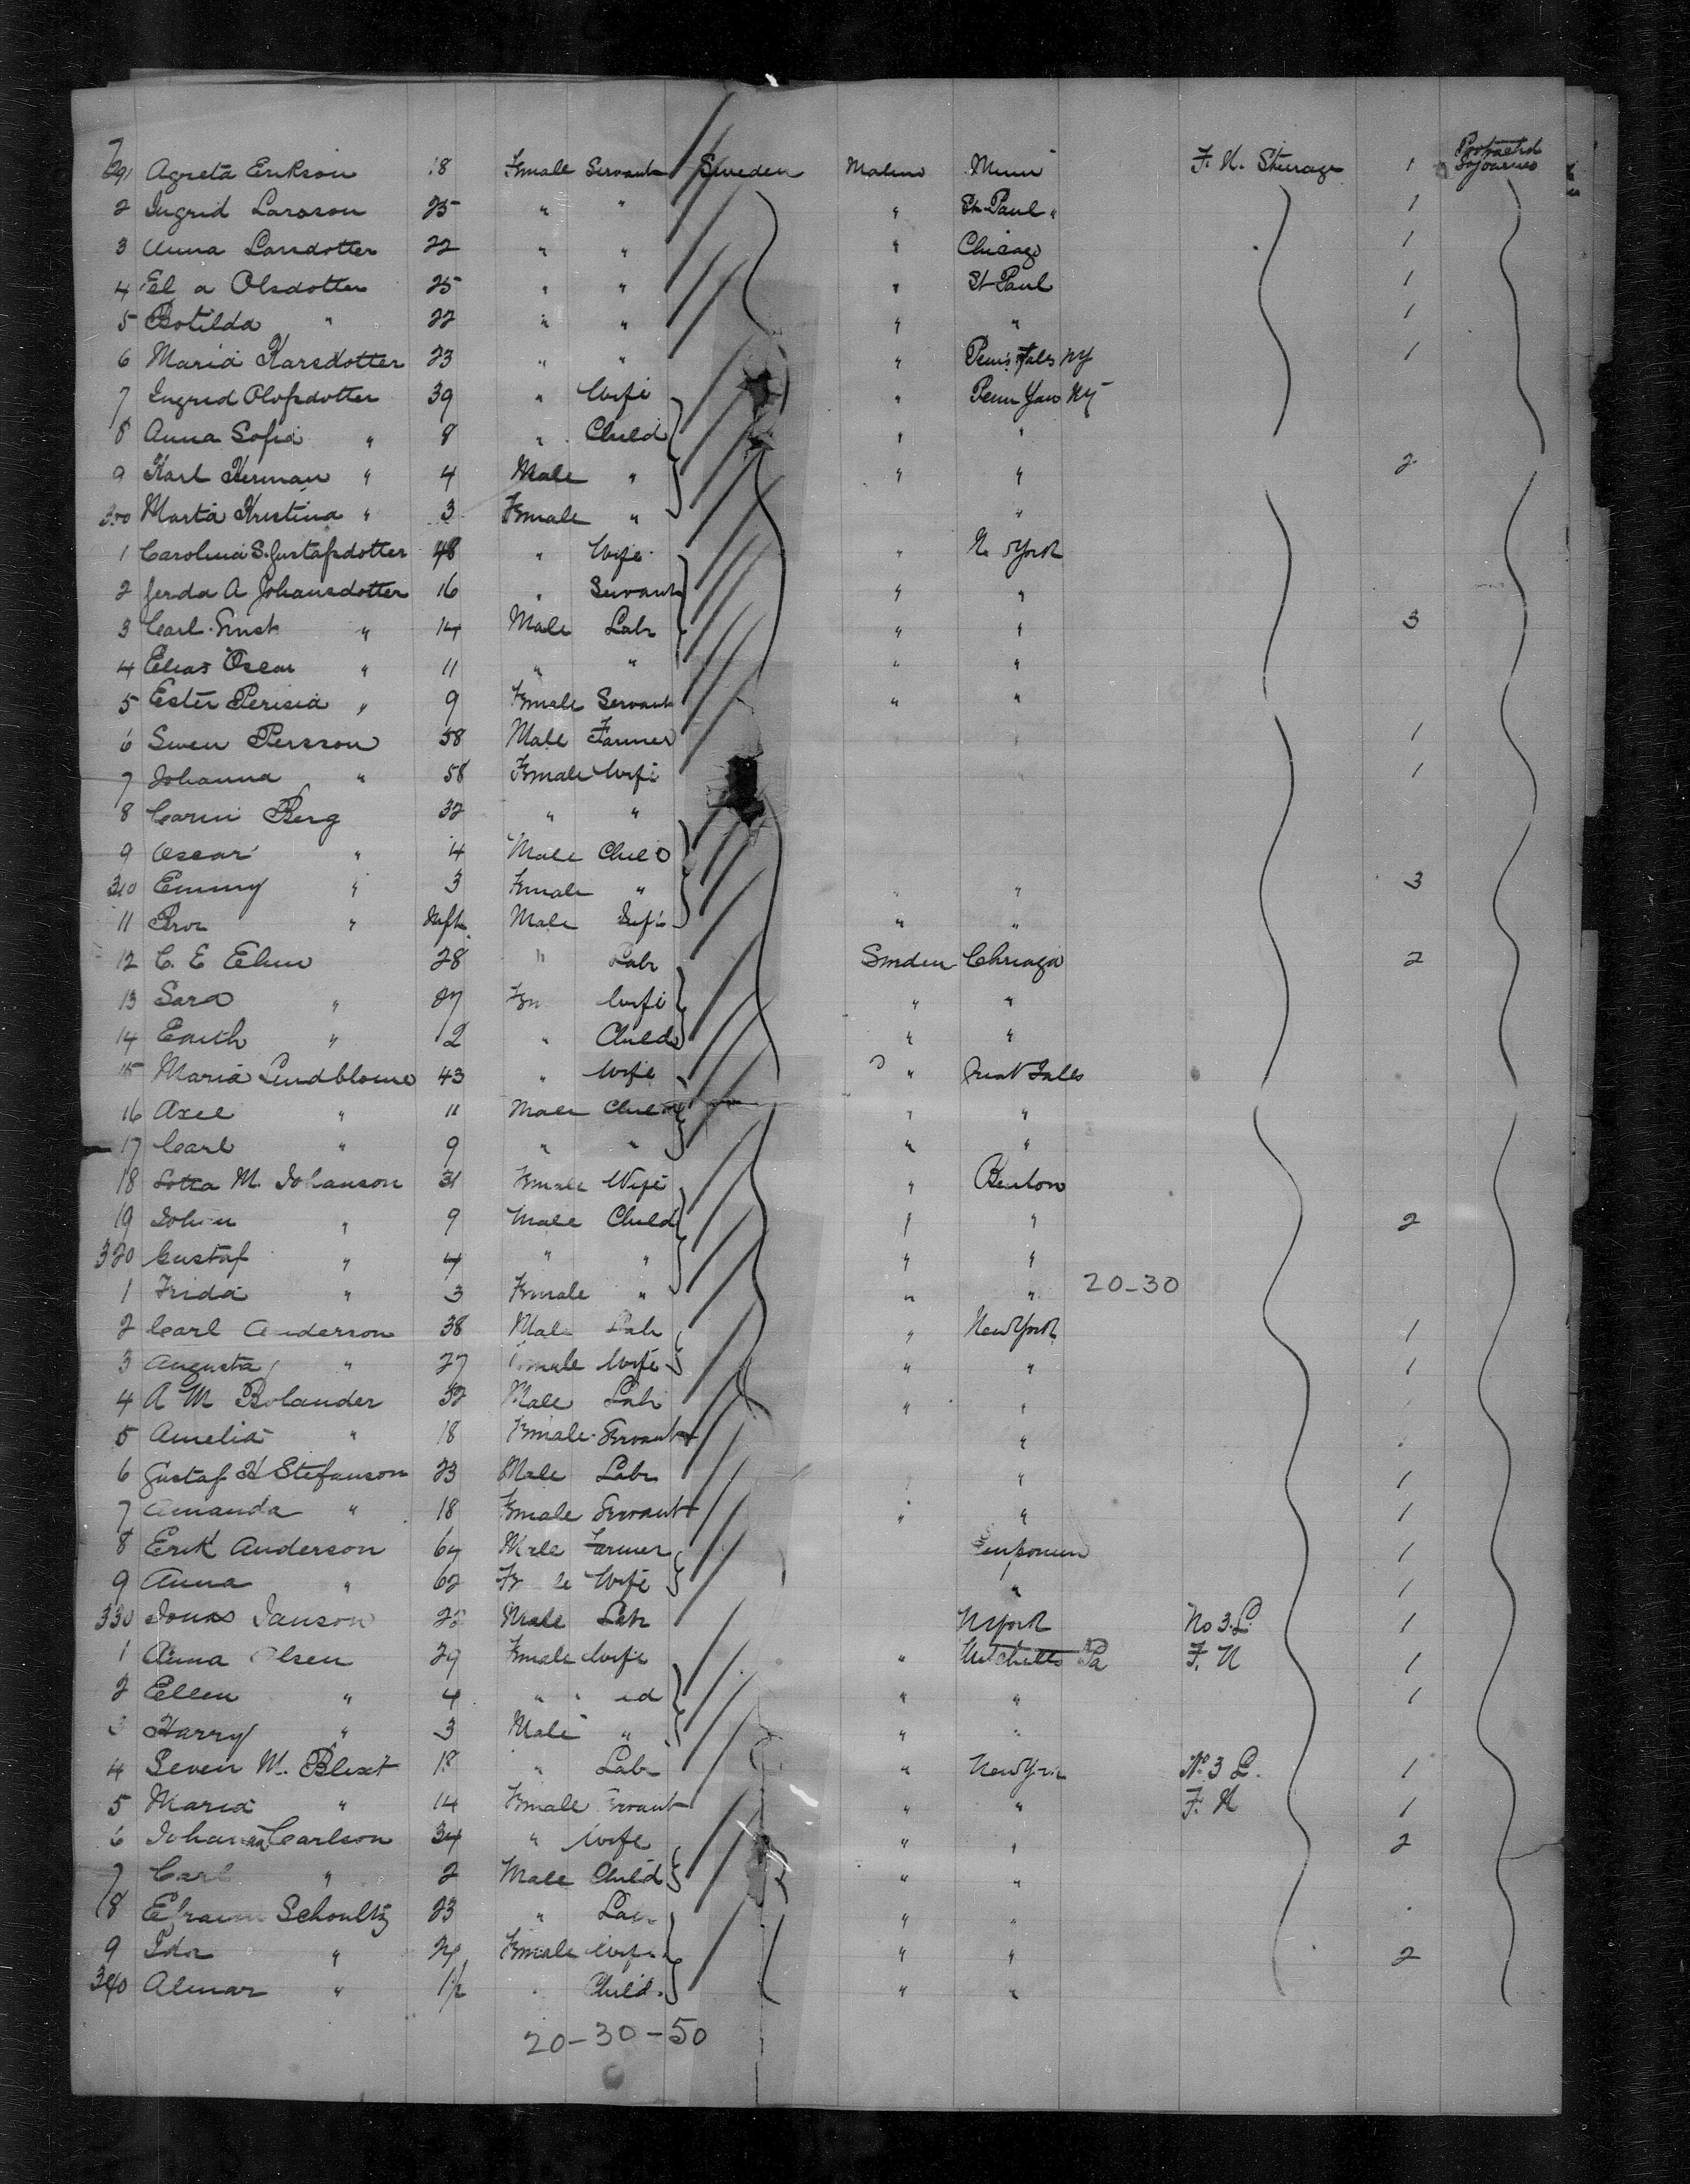 291 Agreta Erikson 18 Female Servant Sweden Malmo Minn F. H. Steerage 1 Protracted Sojourners
2 Ingrid Larsson 25 " " " St Paul " 1
3 Anna Larsdotter 22 " " " Chicago 1
4 El a Olsdotter 25 " " " St Paul 1
5 Botilda " 22 " " " " 1
6 Maria Karsdotter 23 " " " Falls NY 1
7 Ingrid Olofsdotter 39 " Wife " Penn Yan NY
8 Anna Sofia " 8 " Child " "
9 Karl Herman " 4 Male " " " 2
300 Marta Kristina " 3 Female " "
1 Carolina S. Gustafsdotter 48 " Wife " N York
2 Gerda A Johansdotter 16 " Servant " "
3 Carl Ernst " 14 Male Labr " " 3
4 Elias Oscar " 11 " " " "
5 Ester " 9 Female Servant " "
6 Swen Persson 58 Male Farmer 1
7 Johanna " 58 Female Wife 1
8 Carin Berg 32 " "
9 Oscar " 4 Male Child
310 Emmy " 3 Female " " " 3
11 " Inft. Male Inft " "
12 C. E Elun 28 " Labr Sweden Chicago 2
13 Sara " 27 Wife " "
14 Edith " 2 " Child " "
15 Maria Lindblome 43 " Wife " Great Falls
16 Axel " 11 Male Child " "
17 Carl " 9 " " " "
18 Lotta M. Johanson 31 Female Wife " Benton
19 John " 9 Male Child " " 2
320 Gustaf " 4 " " " "
1 Frida " 3 Female " " " 20-30
2 Carl Anderson 38 Male Labr " New York 1
3 Augusta " 27 Female Wife " " 1
4 A M Bolander 52 Male Labr " "
5 Amelia " 18 Female Servant "
6 Gustaf H Stefanson 23 Male Labr " 1
7 Amanda " 18 Female Servant " " 1
8 Erik Anderson 64 Male Farmer Emporium 1
9 Anna " 62 Wife " 1
330 Jonas Janson Male Labr N York No 3. L. 1
1 Anna Olsen 29 Female Wife " Pa F. H 1
2 Ellen " 4 " " " " 1
3 Harry " 3 Male " " "
4 Seven M. Blixt 18 " Labr " New York No 3 L. 1
5 Maria " 14 Female Servant " " F. H 1
6 Johanna Carlson 34 " Wife " " 2
7 Carl " 2 Male Child " "
8 Efraim Schoultz 23 " Labr " "
9 Ida " 24 Female Wife " " 2
340 Almar " 1½ " Child. " "
20-30-50